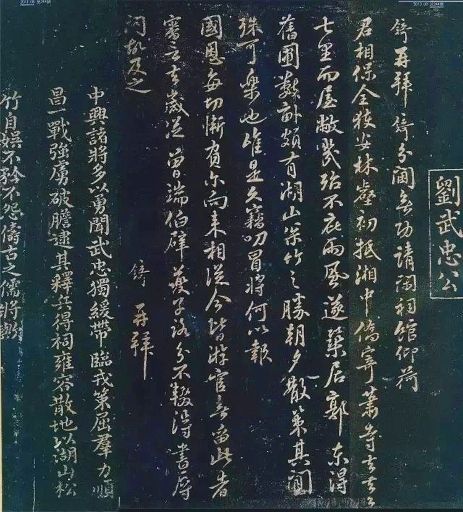 劉武忠公
錡再拜 錡分閫無功請閑祠館仰荷
君相保全獲安林壑初抵湘中僑寄蕭寺
七里而屋敝幾殆不庇雨風遂築居郭東得
舊圃數畝頗有湖山松竹之勝朝夕散策其間
殊可樂也唯是久竊叨冒將何以報
國恩每切慚負尔向來相從今皆游官無留此者
去歲從曾端伯辟 子 分不數得書辱
問故及之
錡 再拜
中興諸將多以勇聞武忠獨緩帶臨戎策屈羣力順
昌一戰強虜破膽逮其釋兵得祠雍容散地以湖山松
竹自娛不矜不怨儔古之儒將歟